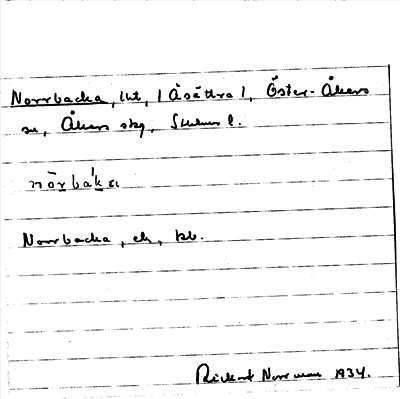 Norrbacka, lht, (Åsättra), Öster-Åkers
sn, Åkers skg, Sthlms l.
Norrbacka, ek, kb.
Rickard Norrman 1934.